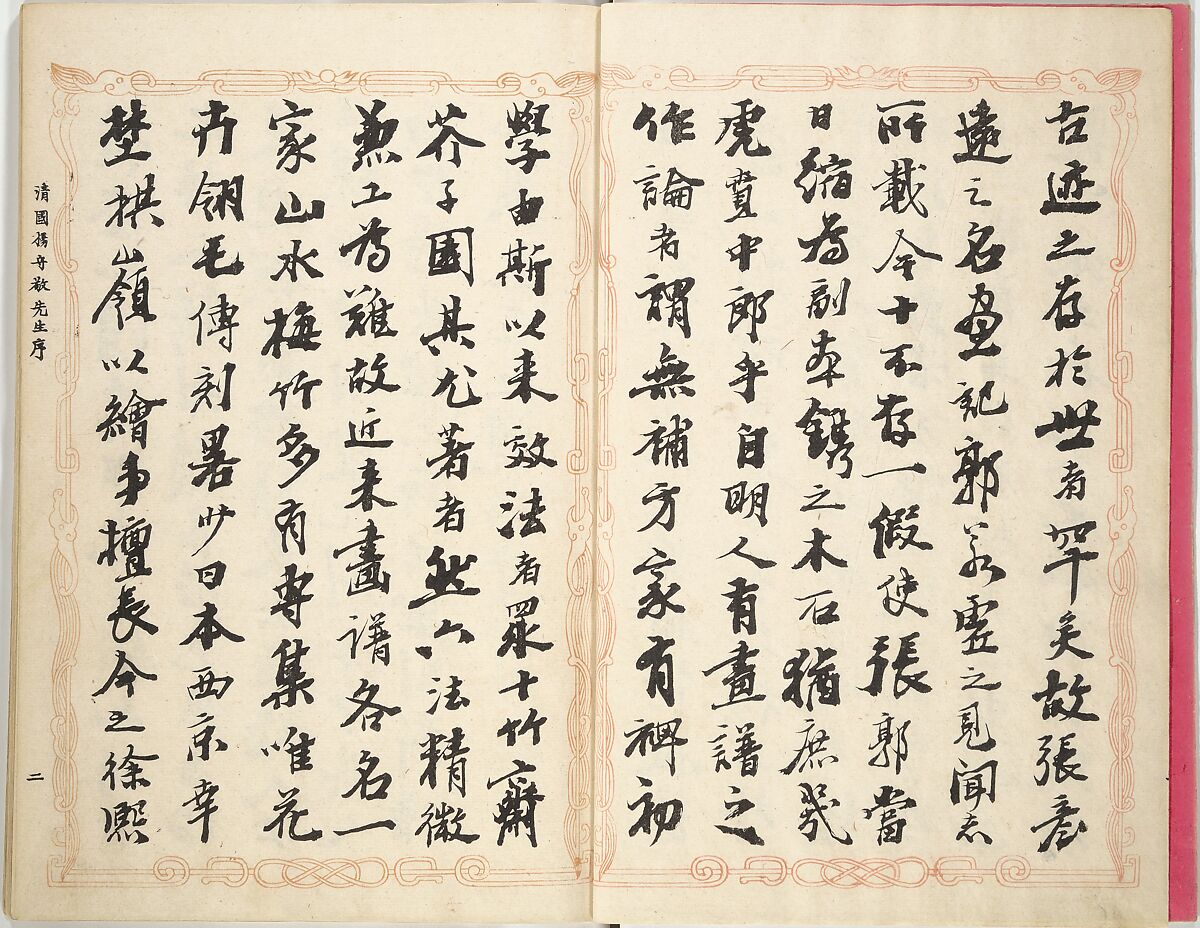 古迹之存於世者罕矣故張彦
遠之名畫記郭若虛之見聞志
所載今十不存一假使張郭當
日縮為副本鐫之木石猶庶幾
虎賁中郎乎自明人有畫譜之
作論者謂無補方家有裨初
學由斯以来效法者眾十竹齋
芥子園其尤著者然六法精微
兼工為難故近来畫譜各名一
家山水梅竹多有專集唯花
卉翎毛傳刻畧少日本西京幸
埜楳嶺以繪事擅長今之徐熙
清國楊守敬先生序
二